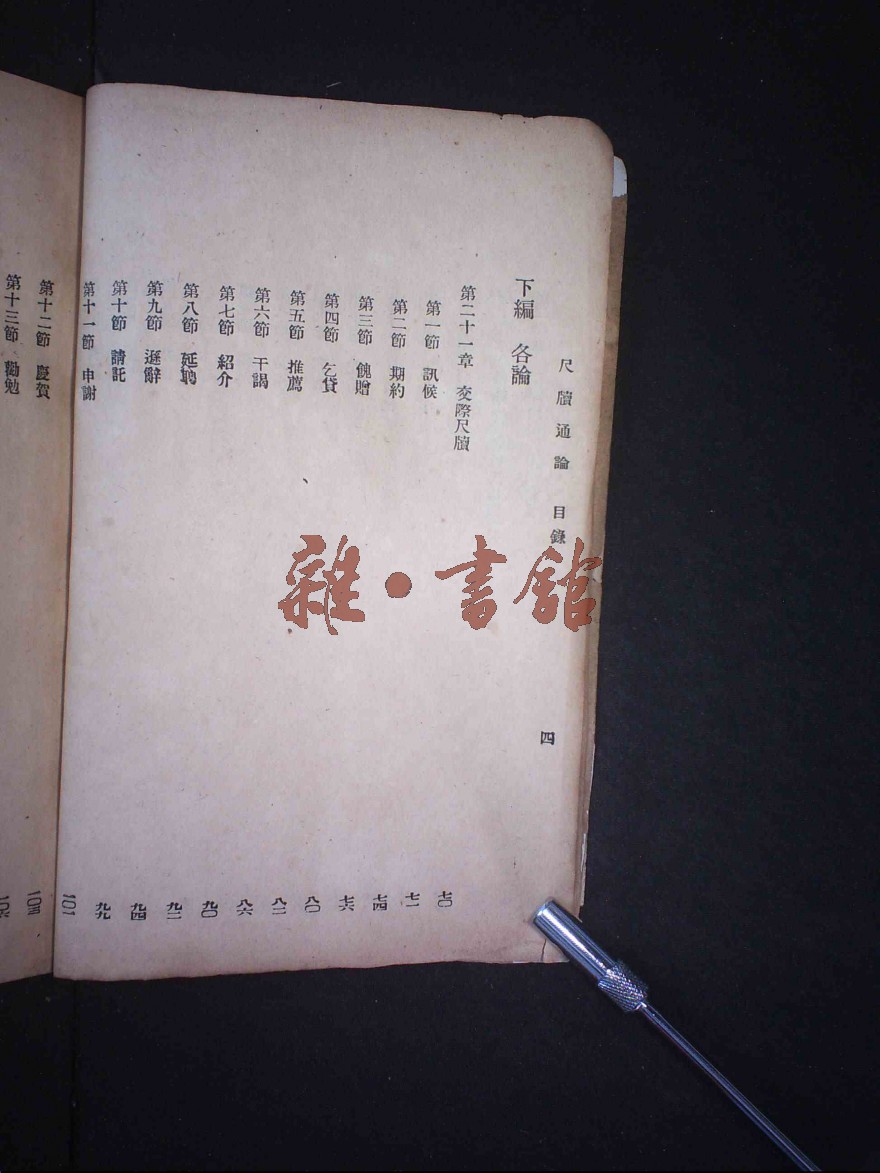 尺牘通論 目錄 四
下編 各論
第二十一章 交際尺牘 七〇
第一節 訊候 七一
第二節 期約 七四
第三節 餽贈 七六
第四節 乞貸 八〇
第五節 推薦 八二
第六節 干謁 八六
第七節 紹介 九〇
第八節 延聘 九二
第九節 遜辭 九四
第十節 請託 九九
第十一節 申謝 一〇一
第十二節 慶賀 一〇三
第十三節 勸勉 一〇六
雜·書館